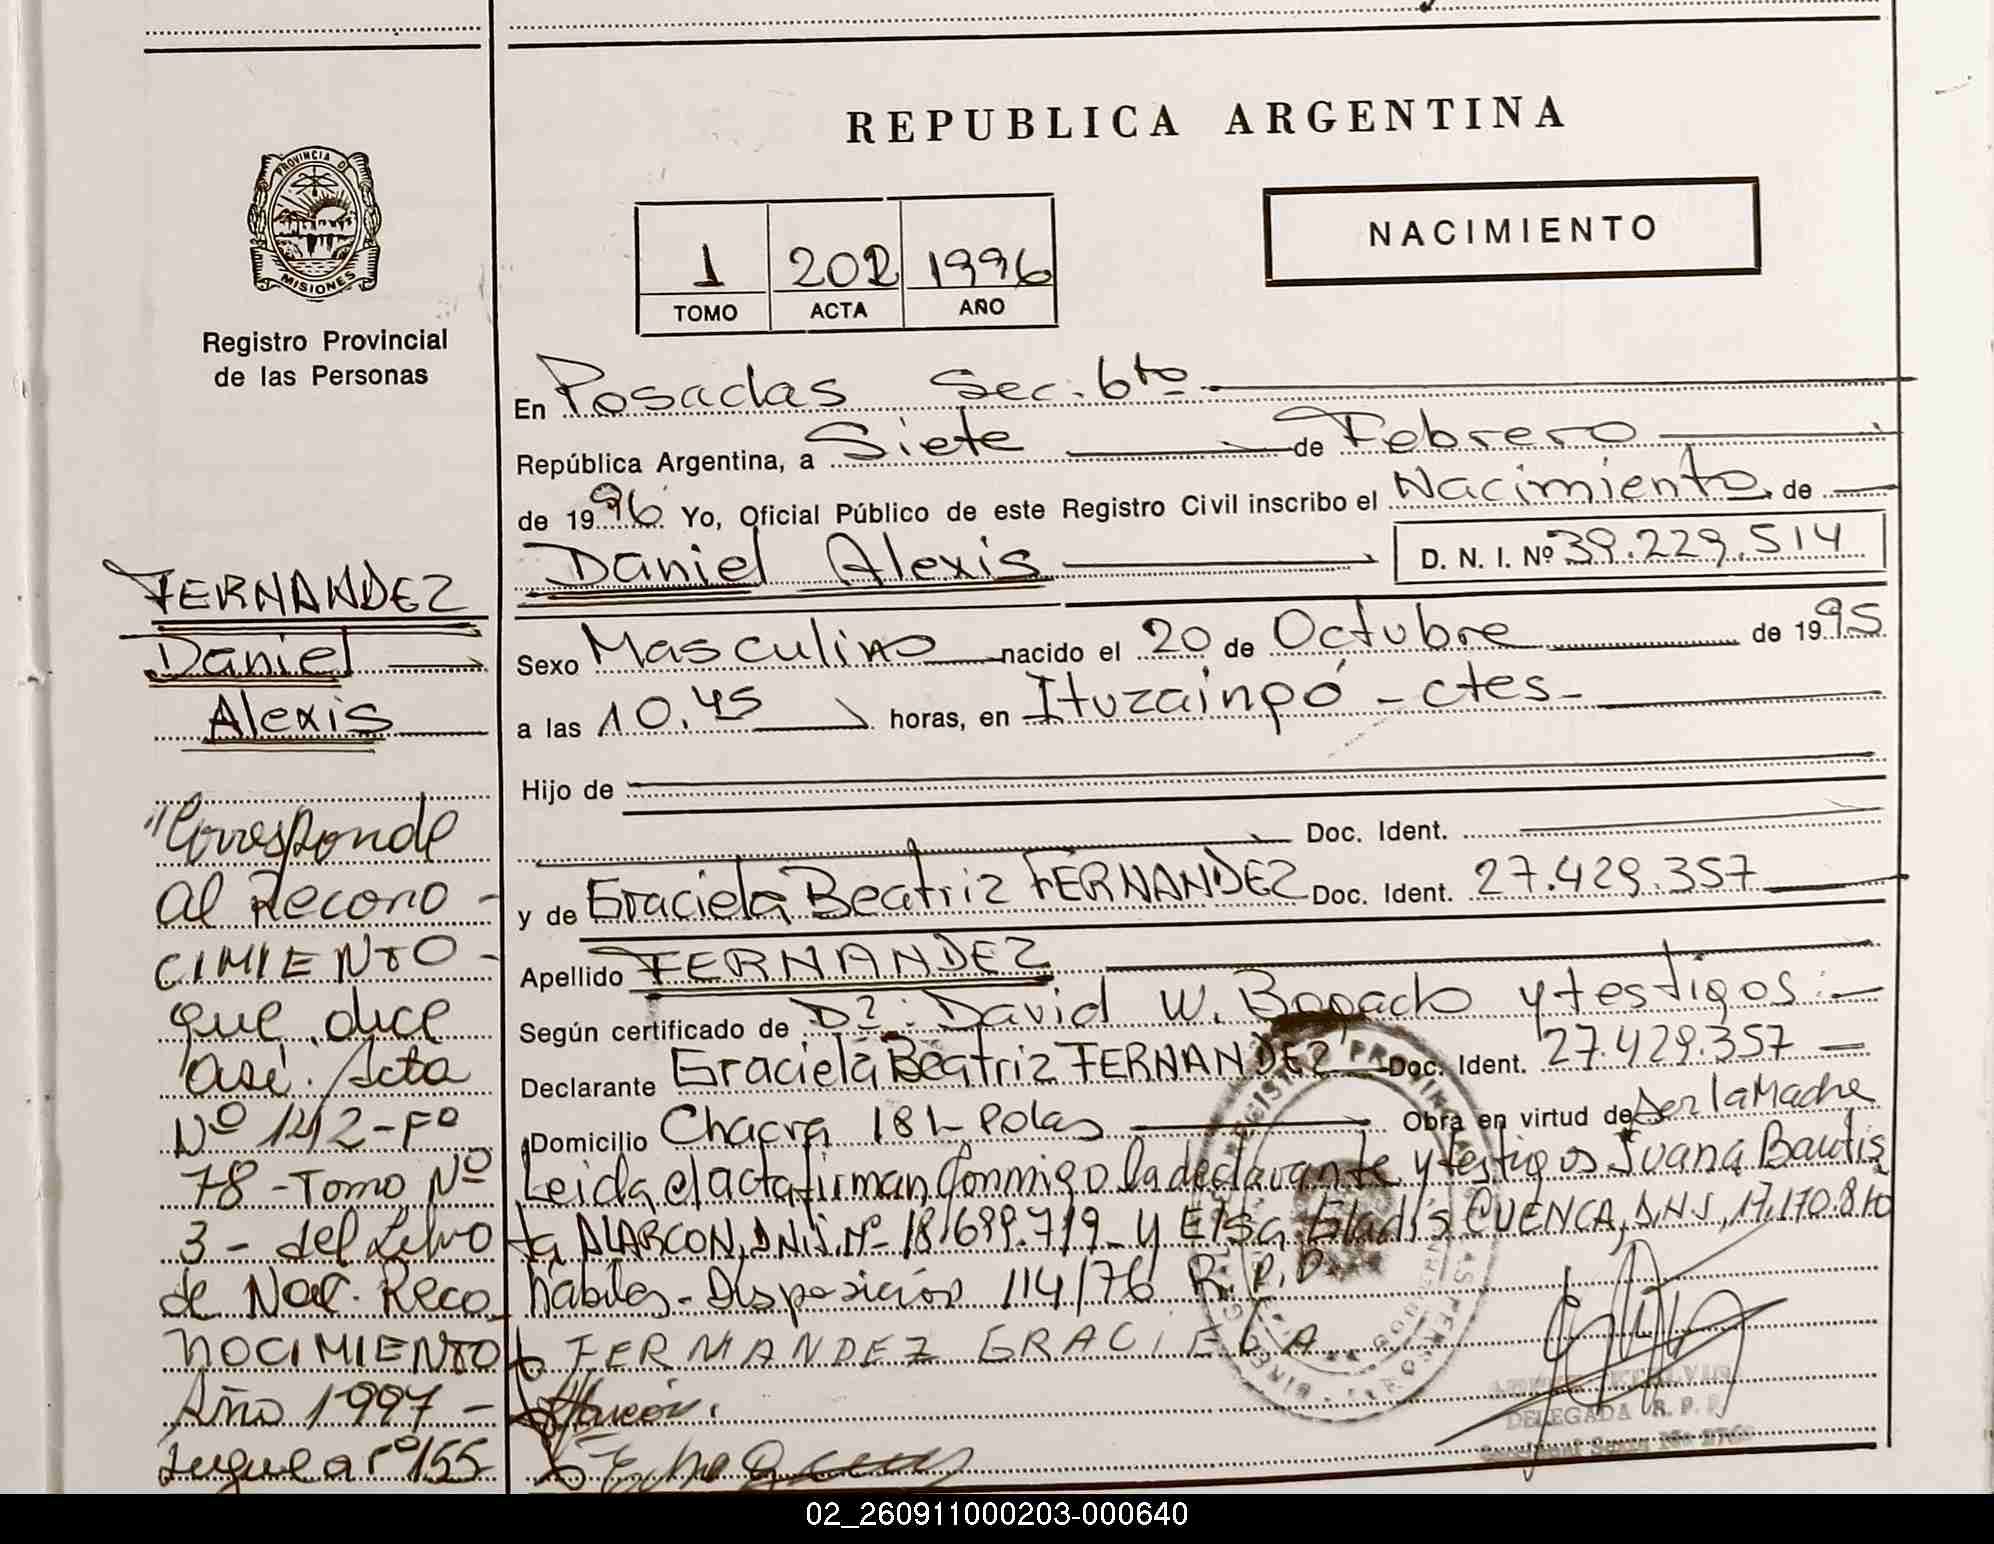 REPUBLICA ARGENTINA
PROVINCIA DE
MISIONES
Registro Provincial
de las Personas
NACIMIENTO
1 202 1996
TOMO ACTA AÑO
En Posadas Sec. 6to
República Argentina, a Siete de Febrero
de 1996 Yo, Oficial Público de este Registro Civil inscribo el Nacimiento de
Daniel Alexis D. N. I. Nº 39.229.514
Sexo Masculino nacido el 20 de Octubre de 1995
a las 10.45 horas, en Ituzaingó - ctes -
Hijo de
Doc. Ident.
y de Graciela Beatriz FERNANDEZ Doc. Ident. 27.429.357
Apellido FERNANDEZ
Según certificado de Dr. David W. Bogado y testigos: -
Declarante Graciela Beatriz FERNANDEZ Doc. Ident. 27.429.357 -
Domicilio Chacra 181- Pdas Obra en virtud de Ser la Madre
Leida el acta firman Conmigo la declarante y testigos Juana Bautis
ta ALARCON, DNI. Nº 18.699.719 - y Elsa Gladis CUENCA, D.N.I. 17.170.810
habiles - Disposición 114/76 R.P.P.
FERNANDEZ GRACIELA
Alarcón.
DELEGADA R. P. P.
FERNANDEZ
Daniel
Alexis
"Corresponde
al Recono -
CIMIENTO -
que dice
así. Acta
Nº 142 - Fº
78 - Tomo Nº
3 - del Libro
de Nac. Reco
NOCIMIENTO
Año 1997 -
02_260911000203-000640